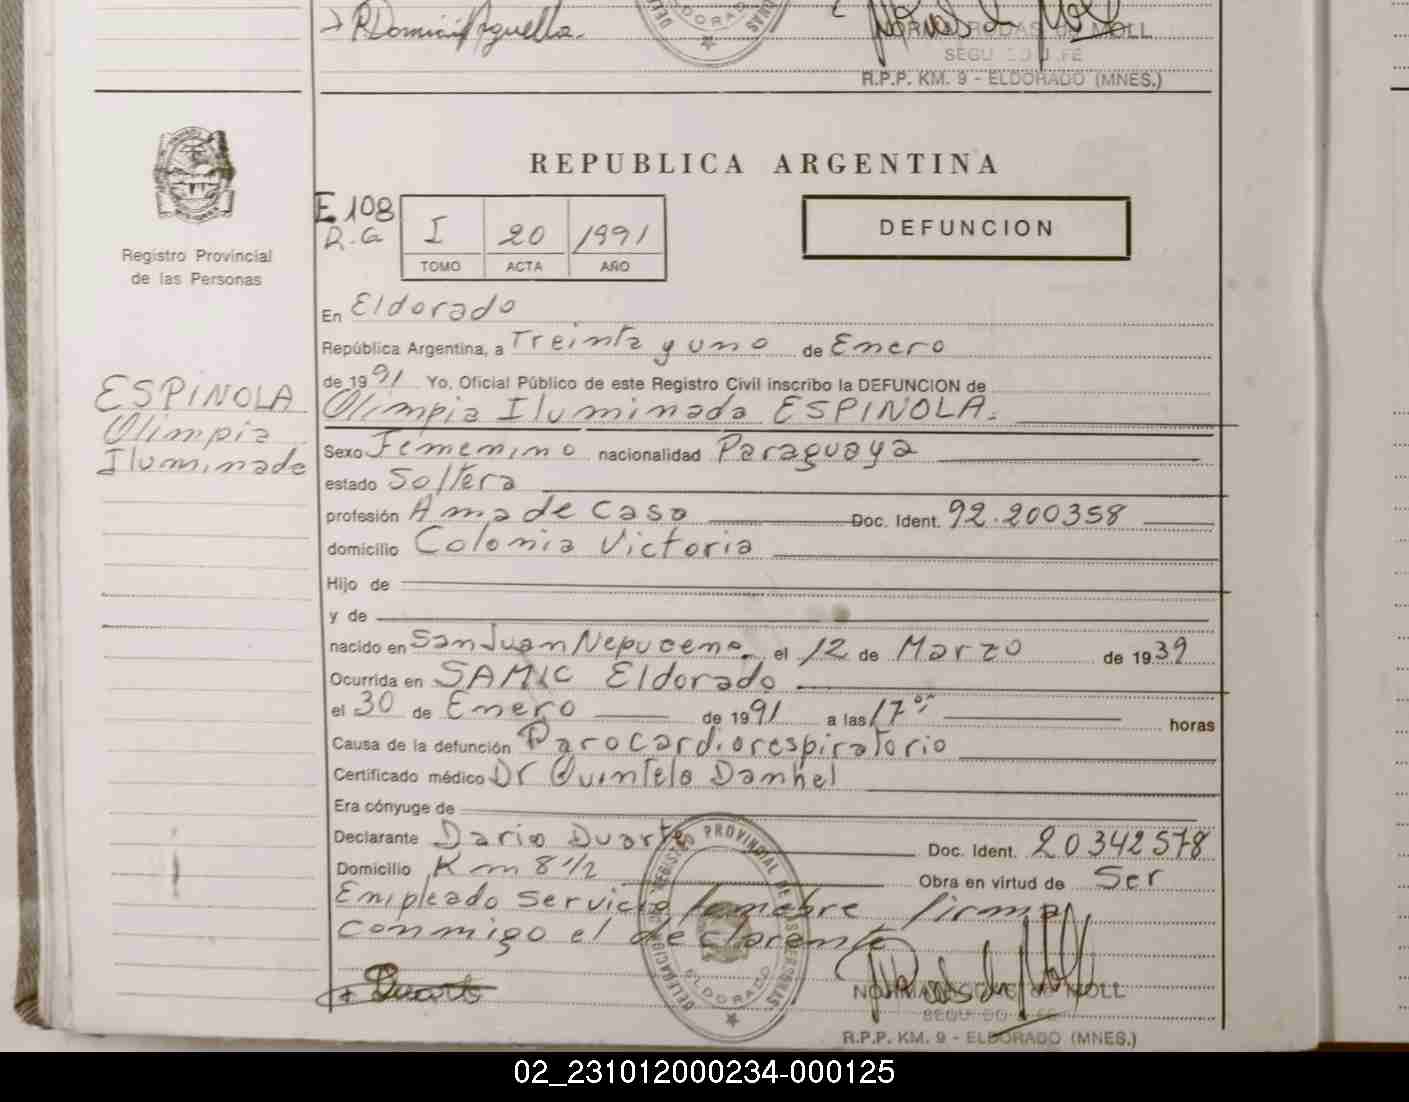 R Domini Aguella.
ELDORADO
NORMA RODAS de MOLL
SEGU DO J FE
R.P.P. KM. 9 - ELDORADO (MNES.)
Registro Provincial
de las Personas
REPUBLICA ARGENTINA
E 108
R.G
I 20 1991
TOMO ACTA AÑO
DEFUNCION
En Eldorado
República Argentina, a Treinta y uno de Enero
de 1991 Yo, Oficial Público de este Registro Civil inscribo la DEFUNCION de
ESPINOLA
Olimpia
Iluminada
Olimpia Iluminada ESPINOLA.
Sexo Femenino nacionalidad Paraguaya
estado Soltera
profesión Ama de Casa Doc. Ident. 92.200358
domicilio Colonia Victoria
Hijo de
y de
nacido en San Juan Nepuceno. el 12 de Marzo de 1939
Ocurrida en SAMIC Eldorado
el 30 de Enero de 1991 a las 17 horas
Causa de la defunción Parocardiorespiratorio
Certificado médico Dr Quintela Danhel
Era cónyuge de
Declarante Dario Duarte Doc. Ident. 20342578
Domicilio Km 8 1/2 Obra en virtud de Ser
Empleado Servicio funebre firma
conmigo el declarante
Duarte
DELEGACION REGISTRO PROVINCIAL DE LAS PERSONAS
ELDORADO
NORMA RODAS de MOLL
SEGU DO J FE
R.P.P. KM. 9 - ELDORADO (MNES.)
02_231012000234-000125